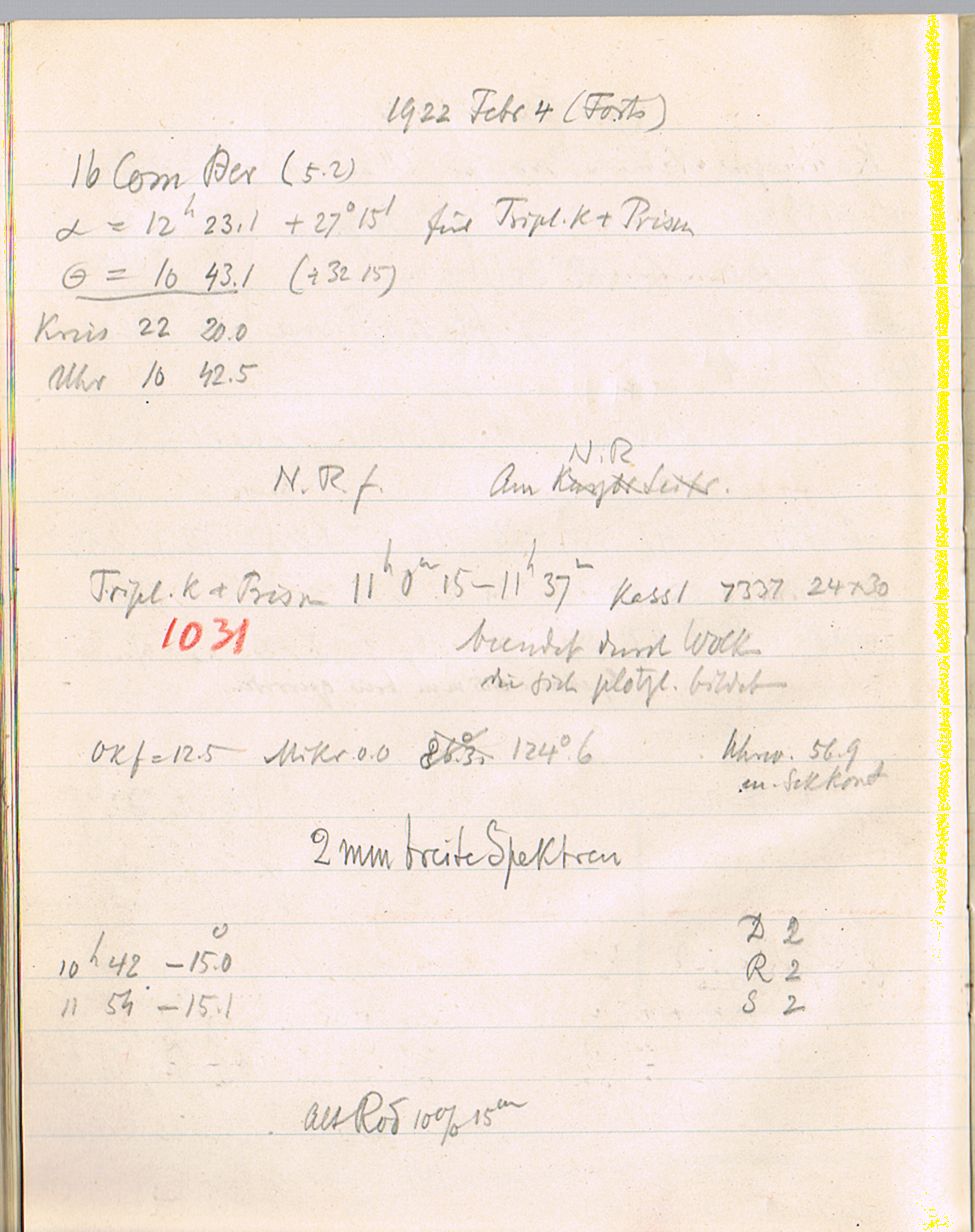 1922 Febr 4 (Forts)
16 Com Ber (5.2)
α = 12h 23.1 + 27° 15' für Tripl. K + Prism
θ = 10 43.1 (+32 15)
Kreis 22 20.0
Uhr 10 42.5
N.R
N. R. f. Am Seitr.
Tripl. K + Prism 11h 0m 15 – 11h 37m Kass 1 7337 24×30
1031 beendet durch Wolk
die sich plötzl. bildet
Okf = 12.5 Mikr. 0.0 26.3 124° 6 Uhrw. 56.9
m. Sekkont
2 mm breite Spektren
D 2
10h 42 – 15.0° R 2
11 54 – 15.1 S 2
Alt Rod 10% 15m